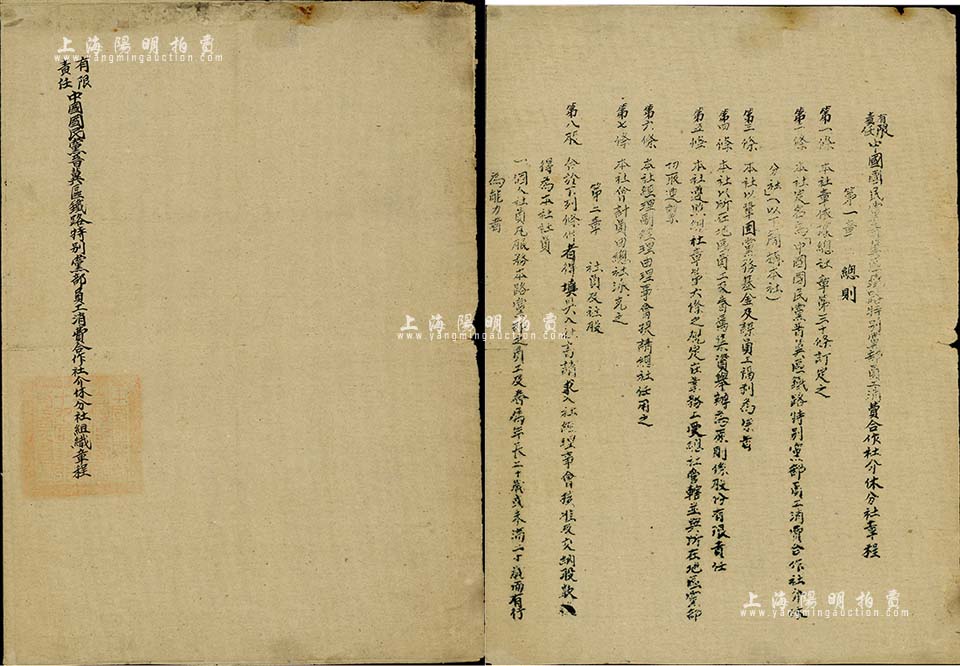 有限
責任
中國國民黨晉冀區鐵路特別黨部員工消費合作社介休分社組織章程
有限
責任
中國國民黨晉冀區鐵路特別黨部員工消費合作社介休分社章程
第一章 總則
第一條 本社章依據總社章第三十條訂定之
第二條 本社定名為中國國民黨晉冀區鐵路特別黨部員工消費合作社介休
分社(以下簡稱本社)
第三條 本社以鞏固黨務基金及謀員工福利為宗旨
第四條 本社以所在地區員工及眷屬集資舉辦為原則係股份有限責任
第五條 本社遵照總社章第六條之規定在業務上受總社管轄並與所在地區黨部
切取連繫
第六條 本社經理副經理由理事會提請總社任用之
第七條 本社會計員由總社派充之
第二章 社員及社股
第八條 合於下列條件者得填具入社書請求入社經理事會核准及交納股款
得為本社社員
一、個人社員凡服務本路黨務之員工及眷屬年長二十歲或未滿二十歲而有行
為能力者
上海陽明拍賣
www.yangmingauction.com
上海陽明拍賣
www.yangmingauction.com
上海陽明拍賣
www.yangmingauction.com
上海陽明拍賣
www.yangmingauction.com